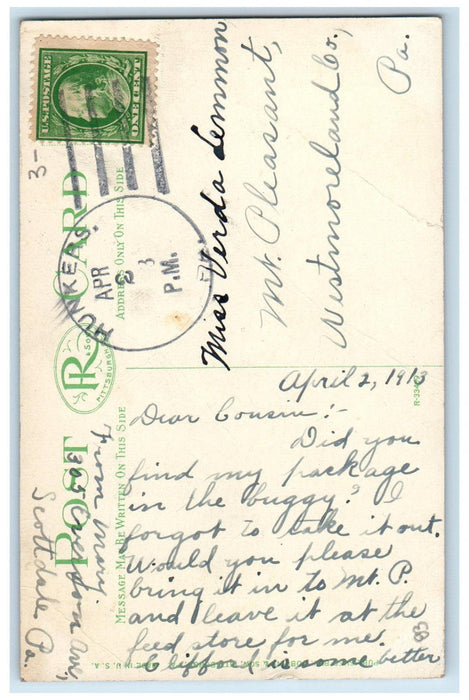 U.S. POSTAGE
ONE CENT
3-
HUNKER,
APR
2
3
P.M.
PA.
POST CARD
ADDRESS ONLY ON THIS SIDE
MESSAGE MAY BE WRITTEN ON THIS SIDE
PITTSBURGH
Miss Verda Lemmon
Mt. Pleasant,
Westmoreland Co.,
Pa.
April 2, 1913
Dear Cousin:-
Did you
find my package
in the buggy? I
forgot to take it out.
Would you please
bring it in to Mt. P.
and leave it at the
feed store for me.
Clifford is some better
From
Ave,
Scottdale, Pa.